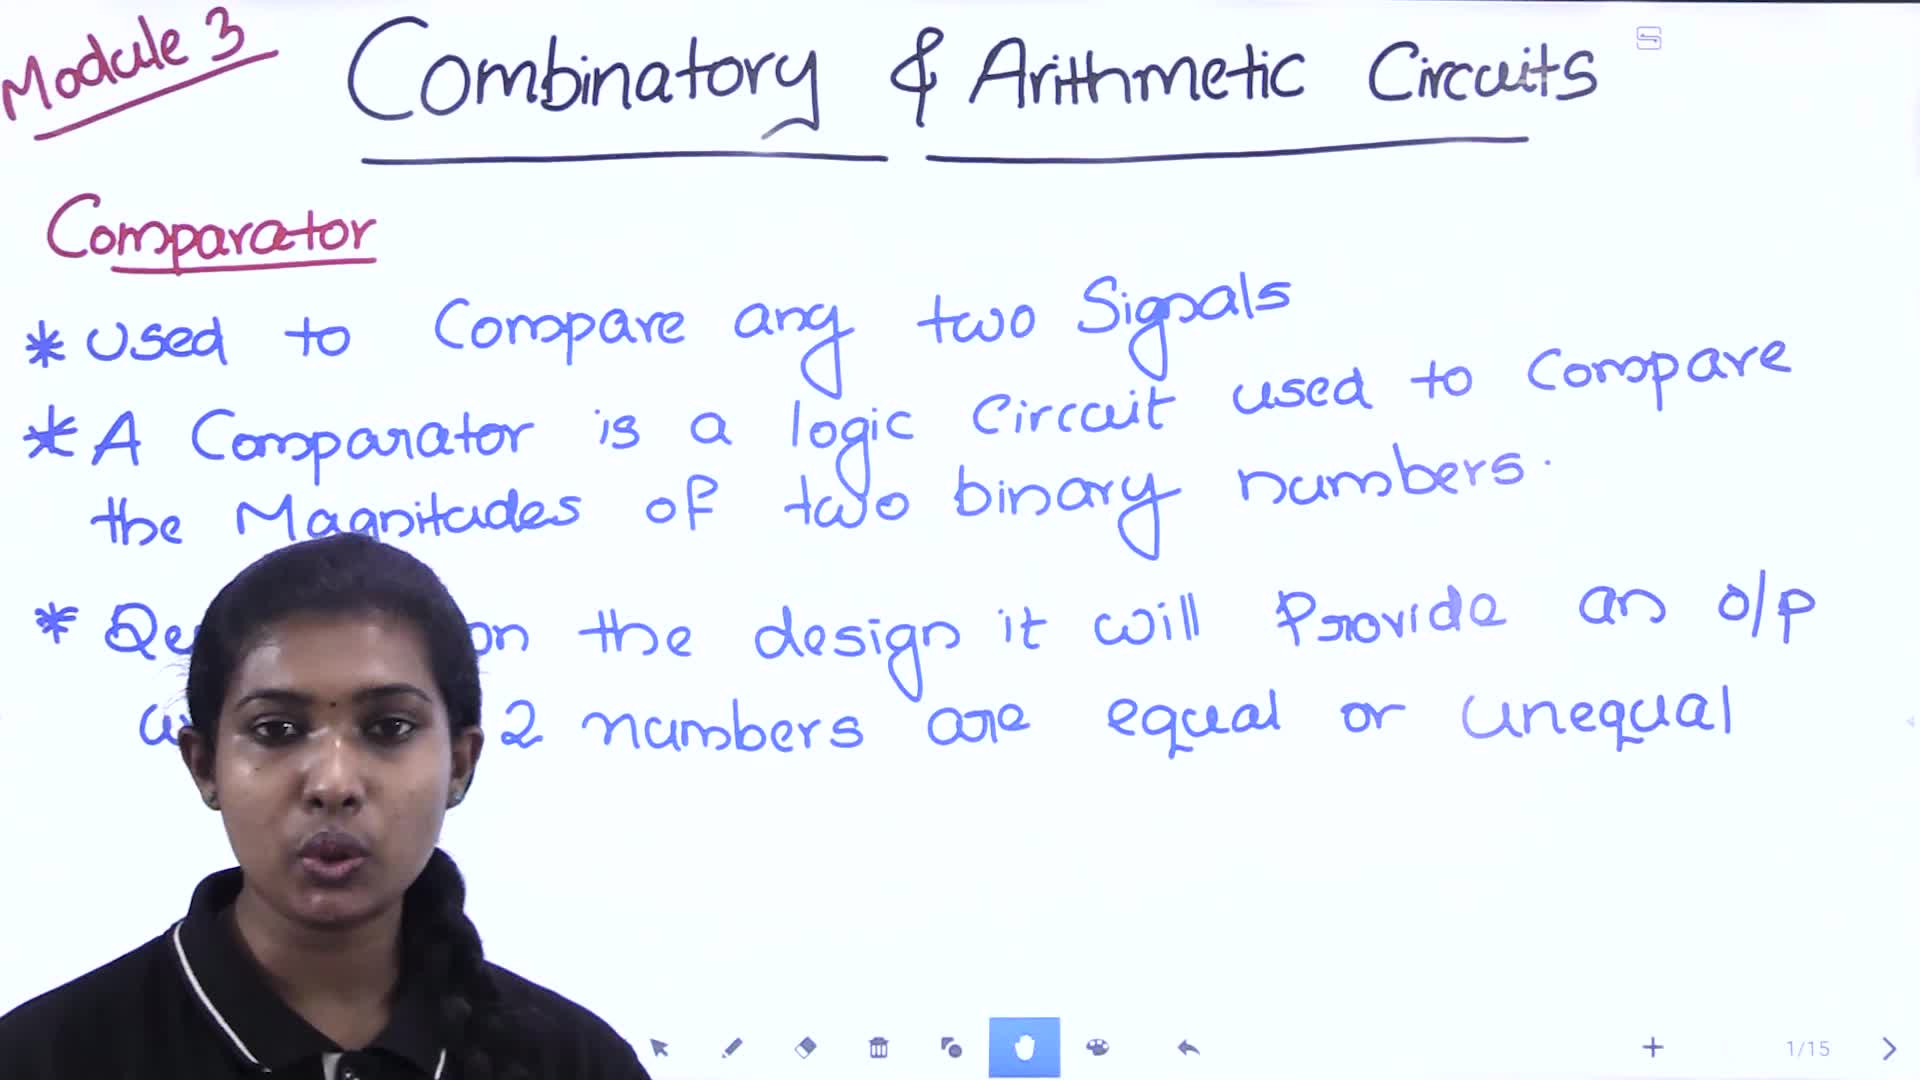 Module 3
Combinatory & Arithmetic Circuits
Comparator
* Used to Compare any two Signals
* A Comparator is a logic Circuit used to Compare
the Magnitudes of two binary numbers.
* on the design it will Provide an o/p
2 numbers are equal or unequal
1/15